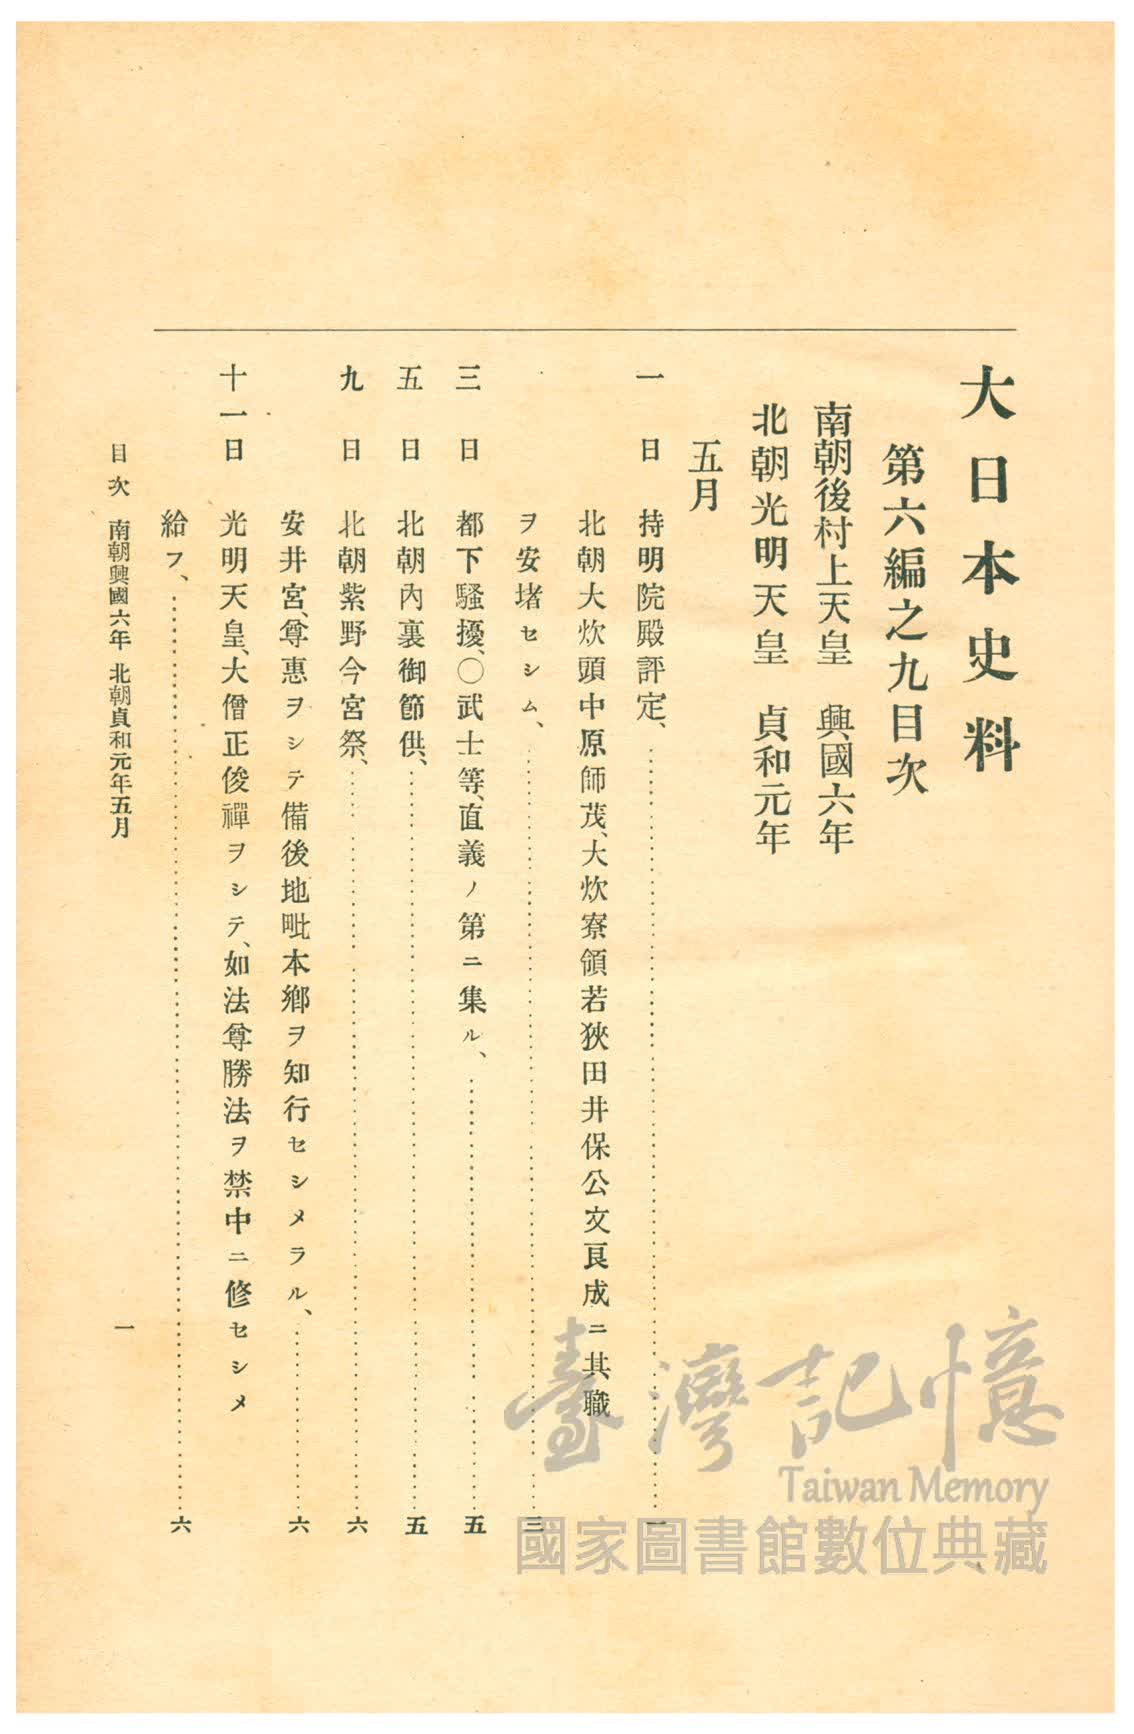 大日本史料
第六編之九目次
南朝後村上天皇 興國六年
北朝光明天皇 貞和元年
五月
一日 持明院殿評定、……一
北朝大炊頭中原師茂、大炊寮領若狹田井保公文良成ニ其職
ヲ安堵セシム、……三
三日 都下騷擾、〇武士等、直義ノ第ニ集ル、……五
五日 北朝內裏御節供、……五
九日 北朝紫野今宮祭、……六
安井宮、尊惠ヲシテ備後地毗本鄕ヲ知行セシメラル、……六
十一日 光明天皇、大僧正俊禪ヲシテ、如法尊勝法ヲ禁中ニ修セシメ
給フ、……六
目次 南朝興國六年 北朝貞和元年五月
一
臺灣記憶
Taiwan Memory
國家圖書館數位典藏